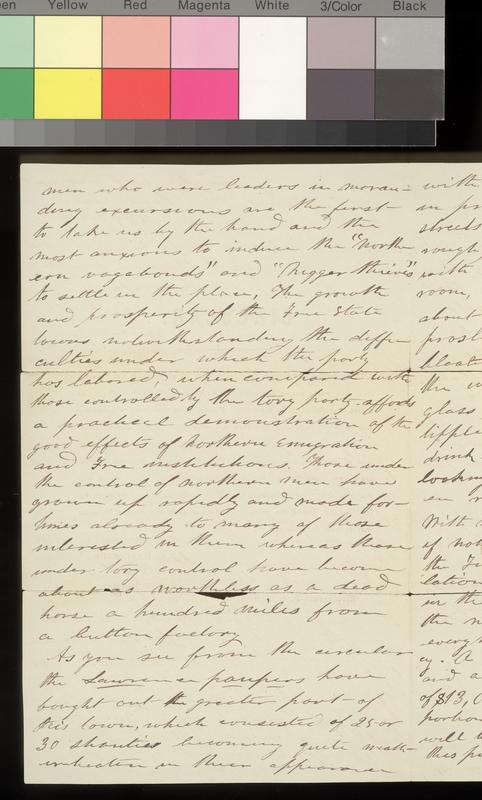 een Yellow Red Magenta White 3/Color Black
men who were leaders in maraud-
ding excursions are the first
to take us by the hand and the
most anxious to induce the "North
ern vagabonds" and "Nigger thieves"
to settle in the place. The growth
and prosperity of the Free State
towns notwithstanding the diffi-
culties under which the party
has labored, when compared with
those controlled by the tory party affords
a practical demonstration of the
good effects of Northern Emigration
and Free institutions. Those under
the control of northern men have
grown up rapidly and made for-
tunes already to many of those
interested in them whereas those
under tory control have become
about as worthless as a dead
horse a hundred miles from
a button factory
As you see from the circular
the Lawrence paupers have
bought out the greater part of
this town, which consisted of 25 or
30 shanties becoming quite
in their appearance
with
in
streets
rough
with
room,
about
the
glass
tipple
drink
looking
With
if not
the
in the
the
every
cy. A
and a
of $13,
portion
will
this